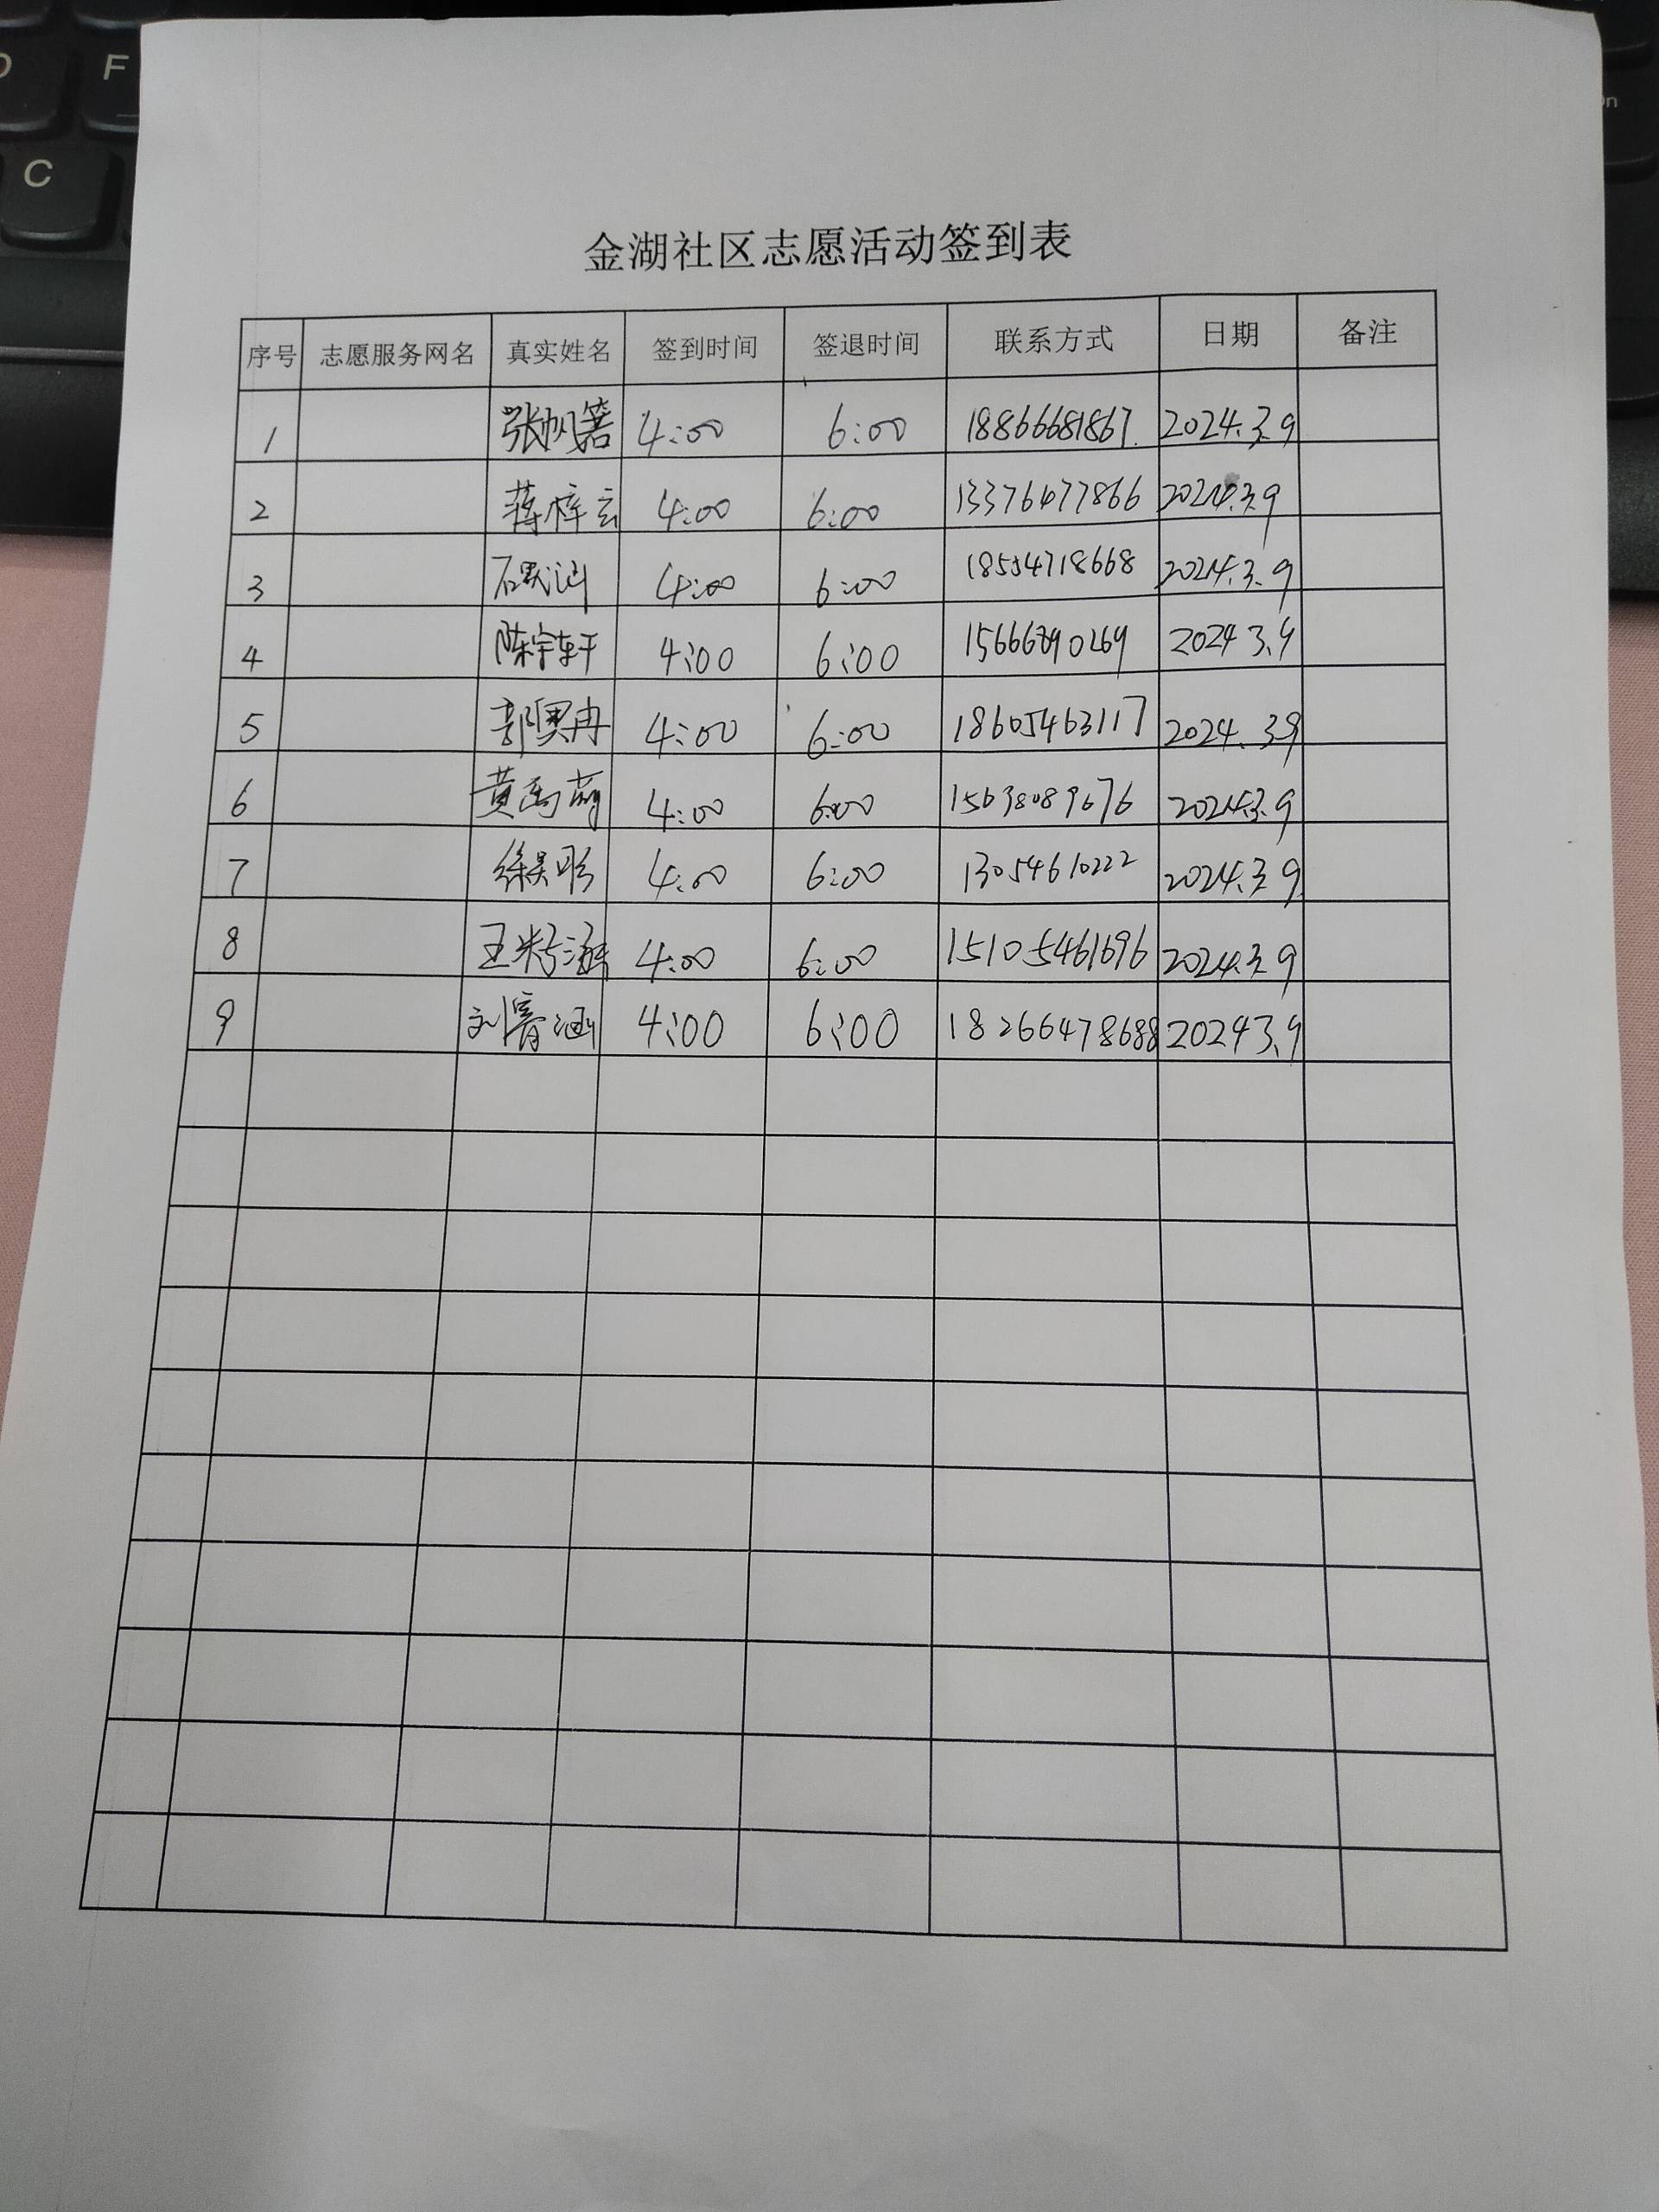 金湖社区志愿活动签到表
序号 志愿服务网名 真实姓名 签到时间 签退时间 联系方式 日期 备注
1 张帆箬 4:00 6:00 18866681867. 2024.3.9
2 蒋梓玄 4:00 6:00 13376477866 2024.3.9
3 石默涵 4:00 6:00 18554718668 2024.3.9
4 陈宇轩 4:00 6:00 2024 3.9
5 郭奥冉 4:00 6:00 18605463117 2024.39
6 黄 4:00 6:00 2024.3.9
7 徐昊彤 4:00 6:00 13054610222 2024.3.9
8 王籽涵 4:00 6:00 15105461696 2024.3.9
9 刘 涵 4:00 6:00 18266478688 2024 3.9
F
C